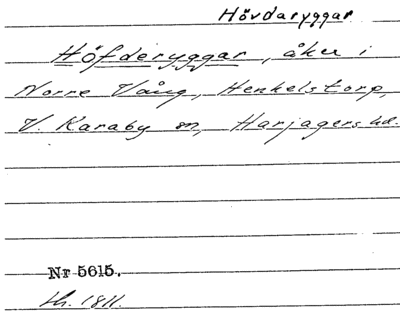 Hövdaryggar
Höfderyggar, åker i
Norre Vång, Henkelstorp,
V. Karaby sn, Harjagers hd.
Nr 5615.
LH. 1811.